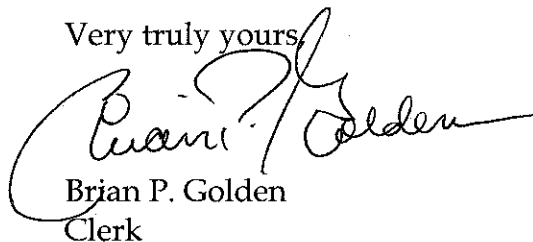 Very truly yours,
Brian P. Golden
Brian P. Golden
Clerk